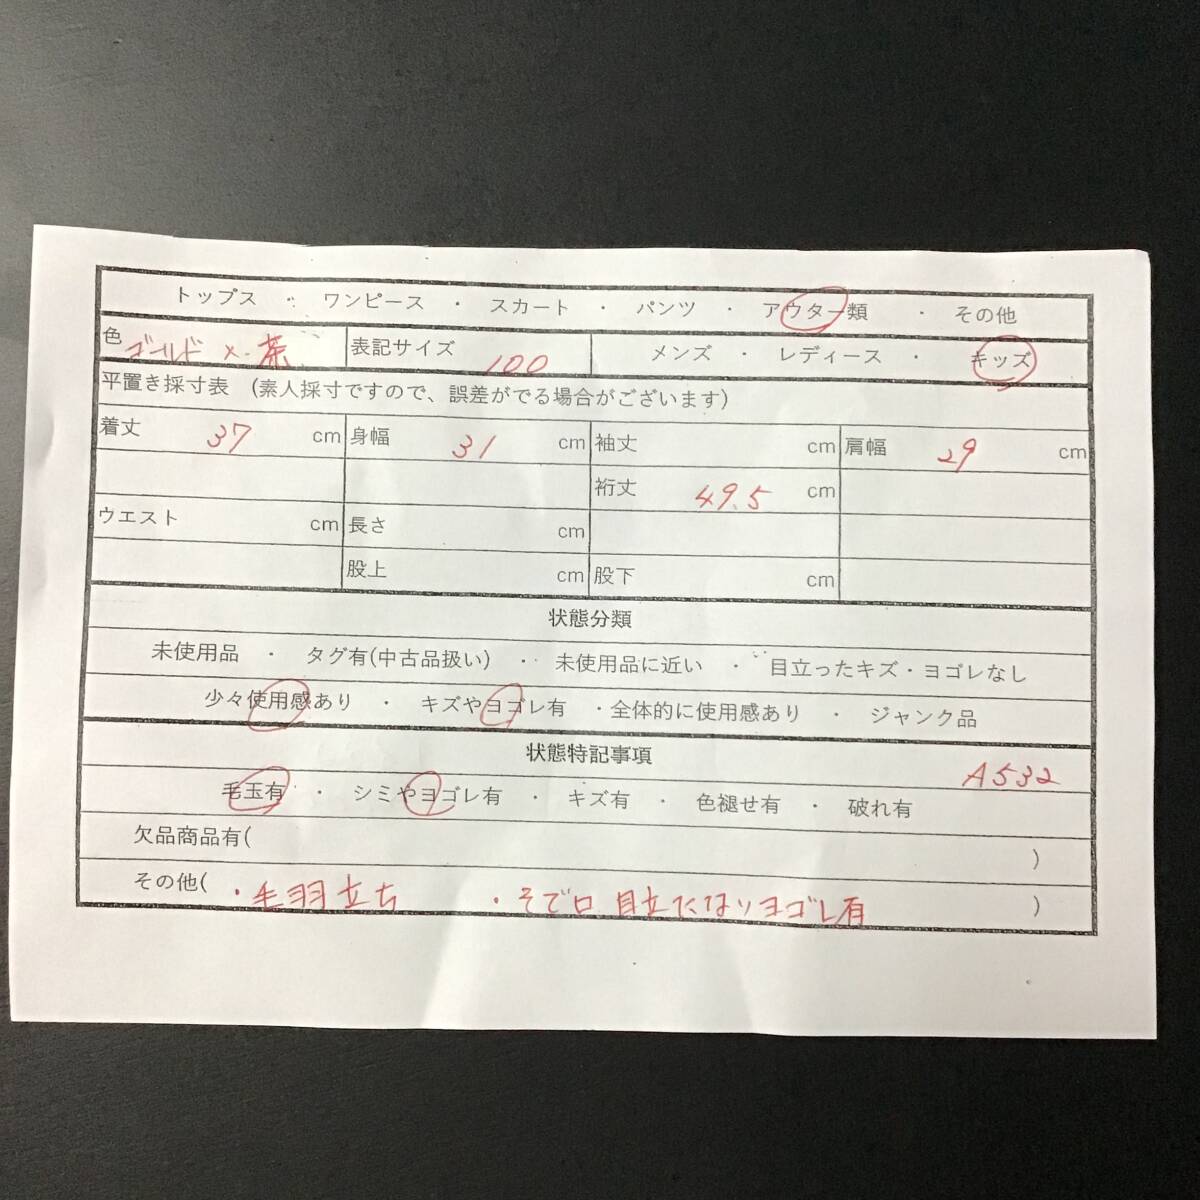 トップス ・ ワンピース ・ スカート ・ パンツ ・ アウター類 ・ その他
色 ゴールド × 茶 表記サイズ 100 メンズ ・ レディース ・ キッズ
平置き採寸表 (素人採寸ですので、誤差がでる場合がございます)
着丈 37 cm 身幅 31 cm 袖丈 cm 肩幅 29 cm
裄丈 49.5 cm
ウエスト cm 長さ cm
股上 cm 股下 cm
状態分類
未使用品 ・ タグ有(中古品扱い) ・ 未使用品に近い ・ 目立ったキズ・ヨゴレなし
少々使用感あり ・ キズやヨゴレ有 ・全体的に使用感あり ・ ジャンク品
状態特記事項 A532
毛玉有 ・ シミやヨゴレ有 ・ キズ有 ・ 色褪せ有 ・ 破れ有
欠品商品有( )
その他( ・毛羽立ち ・そで口 目立たないヨゴレ有 )